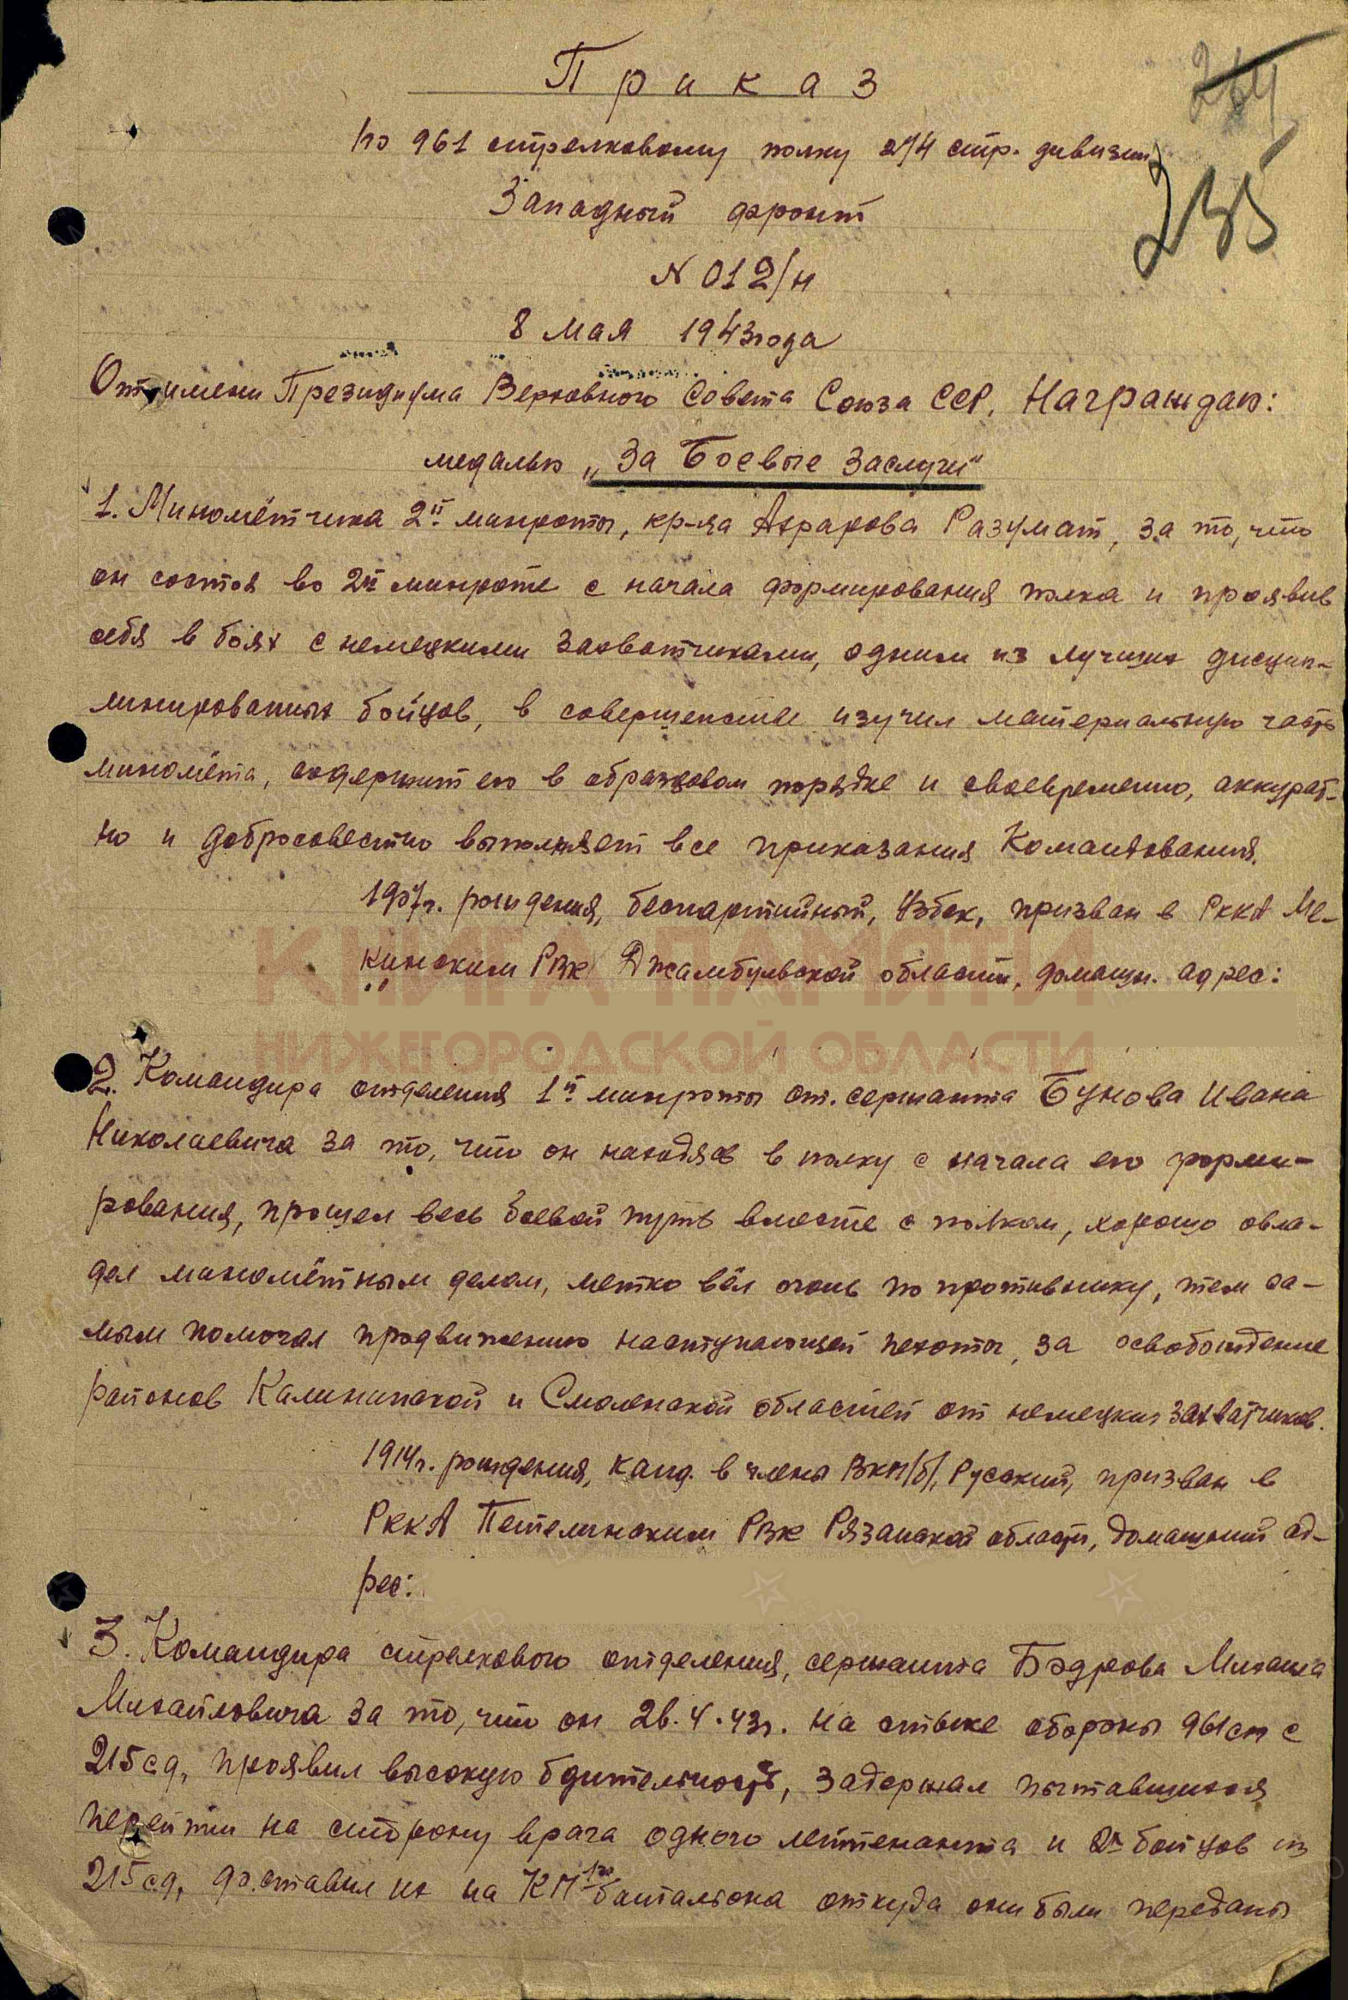 Приказ
264
по 961 стрелковому полку 274 стр. дивизии
235
Западный фронт
N 012/н
8 мая 1943 года
От имени Президиума Верховного Совета Союза ССР, Награждаю:
медалью „За Боевые Заслуги“
1. Миномётчика 2й минроты, кр-ца Ахрарова Разумат, за то, что
он состоя во 2й минроте с начала формирования полка и проявив
себя в боях с немецкими захватчиками, одним из лучших дисцип-
линированных бойцов, в совершенстве изучил материальную часть
миномёта, содержит его в образцовом порядке и своевременно, аккурат-
но и добросовестно выполняет все приказания Командования.
1907г. рождения, беспартийный, Узбек, призван в РККА Ме-
кинским РВК Джамбульской области, домашн. адрес:
КНИГА ПАМЯТИ
НИЖЕГОРОДСКОЙ ОБЛАСТИ
2. Командира отделения 1й минроты ст. сержанта Бунова Ивана
Николаевича за то, что он находясь в полку с начала его форми-
рования, прошел весь боевой путь вместе с полком, хорошо овла-
дел миномётным делом, метко вёл огонь по противнику, тем са-
мым помогал продвижению наступающей пехоты, за освобождение
районов Калининской и Смоленской областей от немецких захватчиков.
1914г. рождения, канд. в члены ВКП/б/, Русский, призван в
РККА Петелинским РВК Рязанской области, домашний ад-
рес:
3. Командира стрелкового отделения, сержанта Бэдрова Михаила
Михайловича за то, что он 26.4.43г. на стыке обороны 961сп с
215сд, проявил высокую бдительность, задержал пытавшихся
перейти на сторону врага одного лейтенанта и 2х бойцов из
215сд, доставил их на КП 1го батальона откуда они были переданы